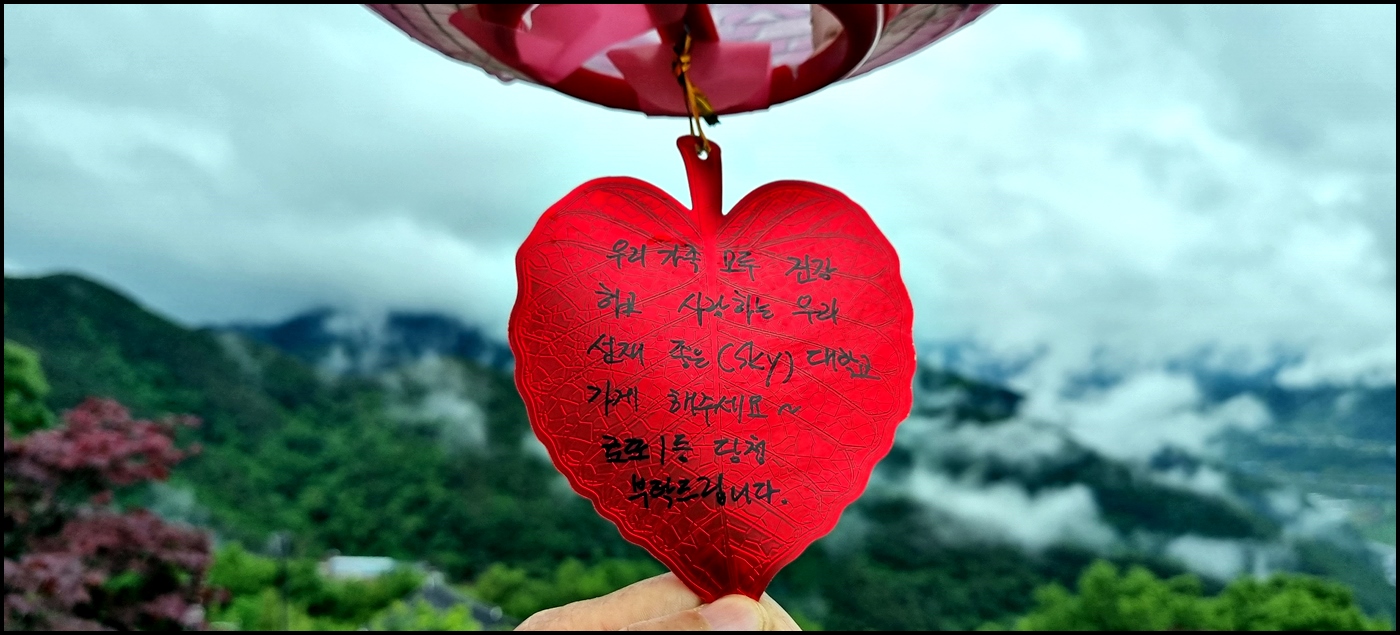 우리 가족 모두 건강
하고 사랑하는 우리
선재 좋은(SKy) 대학교
가게 해주세요~
로또1등 당첨
부탁드립니다.